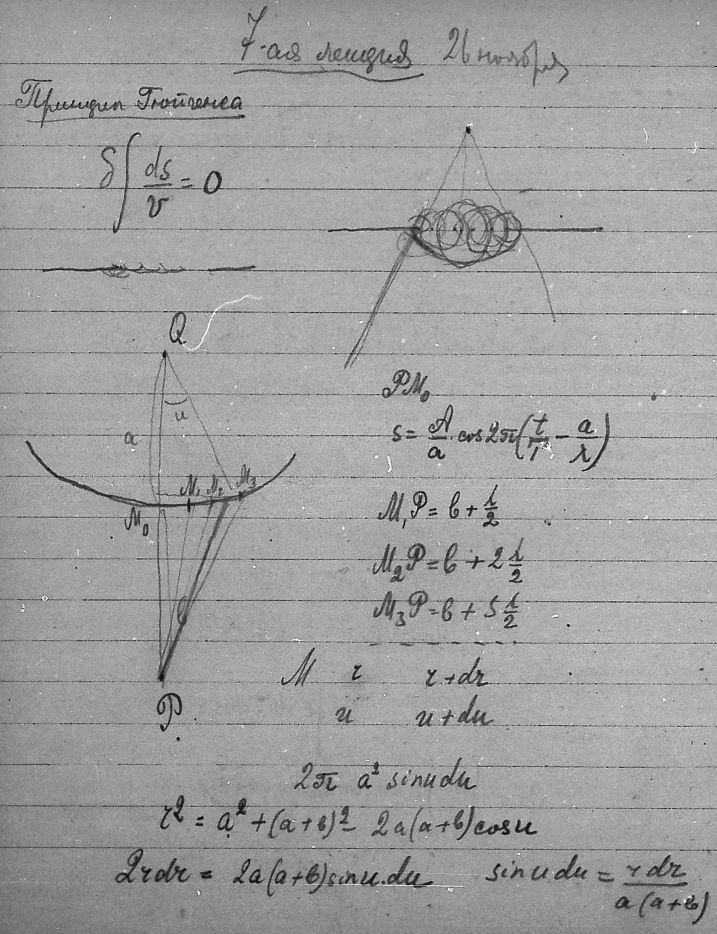 7-ая лекция 26 ноября
Принцип Гюйгенса
δ∫ ds/v = 0
Q
u
a
M₀ M₁ M₂ M₃
P
PM₀
s = A/a cos 2π(t/T − a/λ)
M₁P = b + λ/2
M₂P = b + 2 λ/2
M₃P = b + 3 λ/2
M r r+dr
u u+du
2π a² sin u du
r² = a² + (a+b)² − 2a(a+b)cos u
2rdr = 2a(a+b)sin u.du sin u du = rdr/a(a+b)